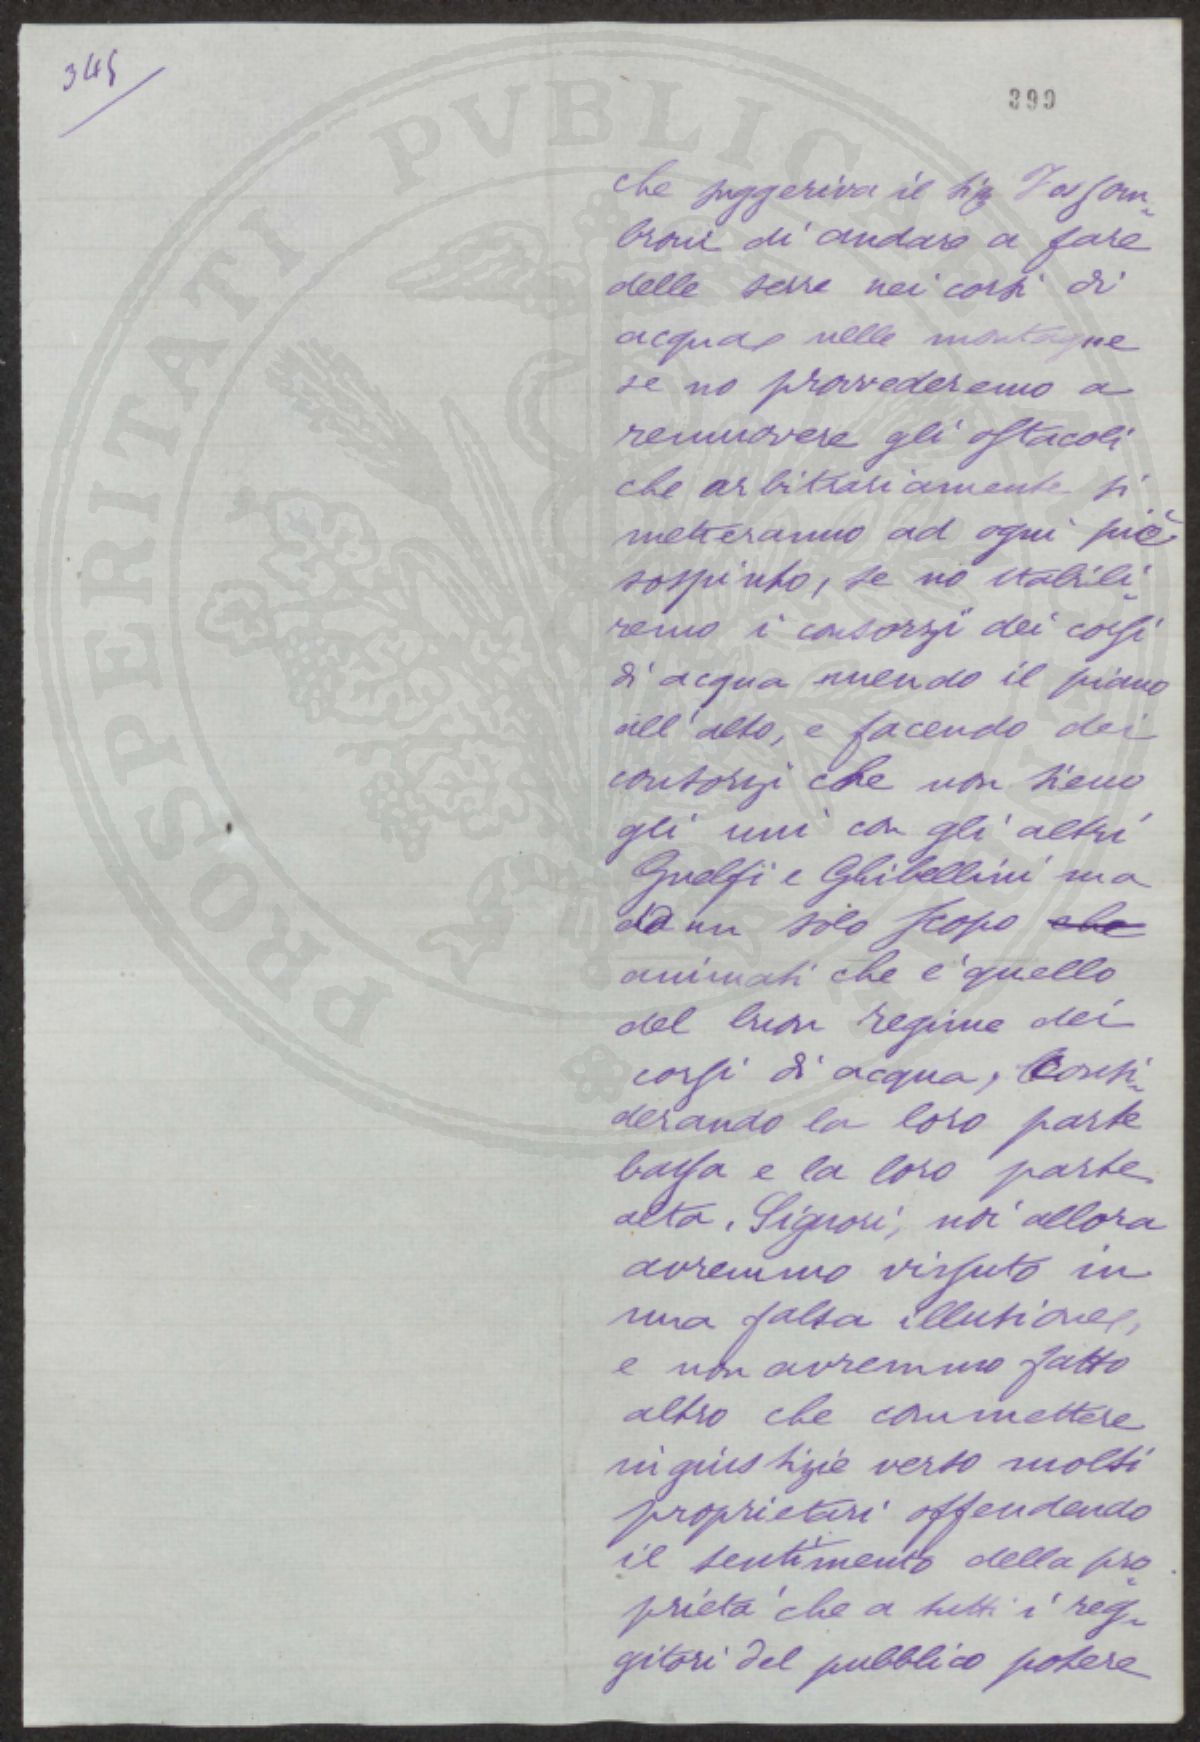 345
399
che suggeriva il sig Fossom-
broni di andare a fare
delle serre nei corsi di
acqua, nelle montagne
se no provvederemo a
remuovere gli ostacoli
che arbitrariamente si
metteranno ad ogni piè
sospinto, se no stabili-
remo i consorzi dei corsi
di acqua unendo il piano
all'alto, e facendo dei
consorzi che non sieno
gli uni con gli altri
Guelfi e Ghibellini ma
da un solo scopo che
animati che è quello
del buon regime dei
corsi di acqua, Consi-
derando la loro parte
bassa e la loro parte
alta. Signori, noi allora
avremmo vissuto in
una falsa illusione,
e non avremmo fatto
altro che commettere
ingiustizie verso molti
proprietari offendendo
il sentimento della pro-
prietà che a tutti i reg-
gitori del pubblico potere
PROSPERITATI PVBLICAE